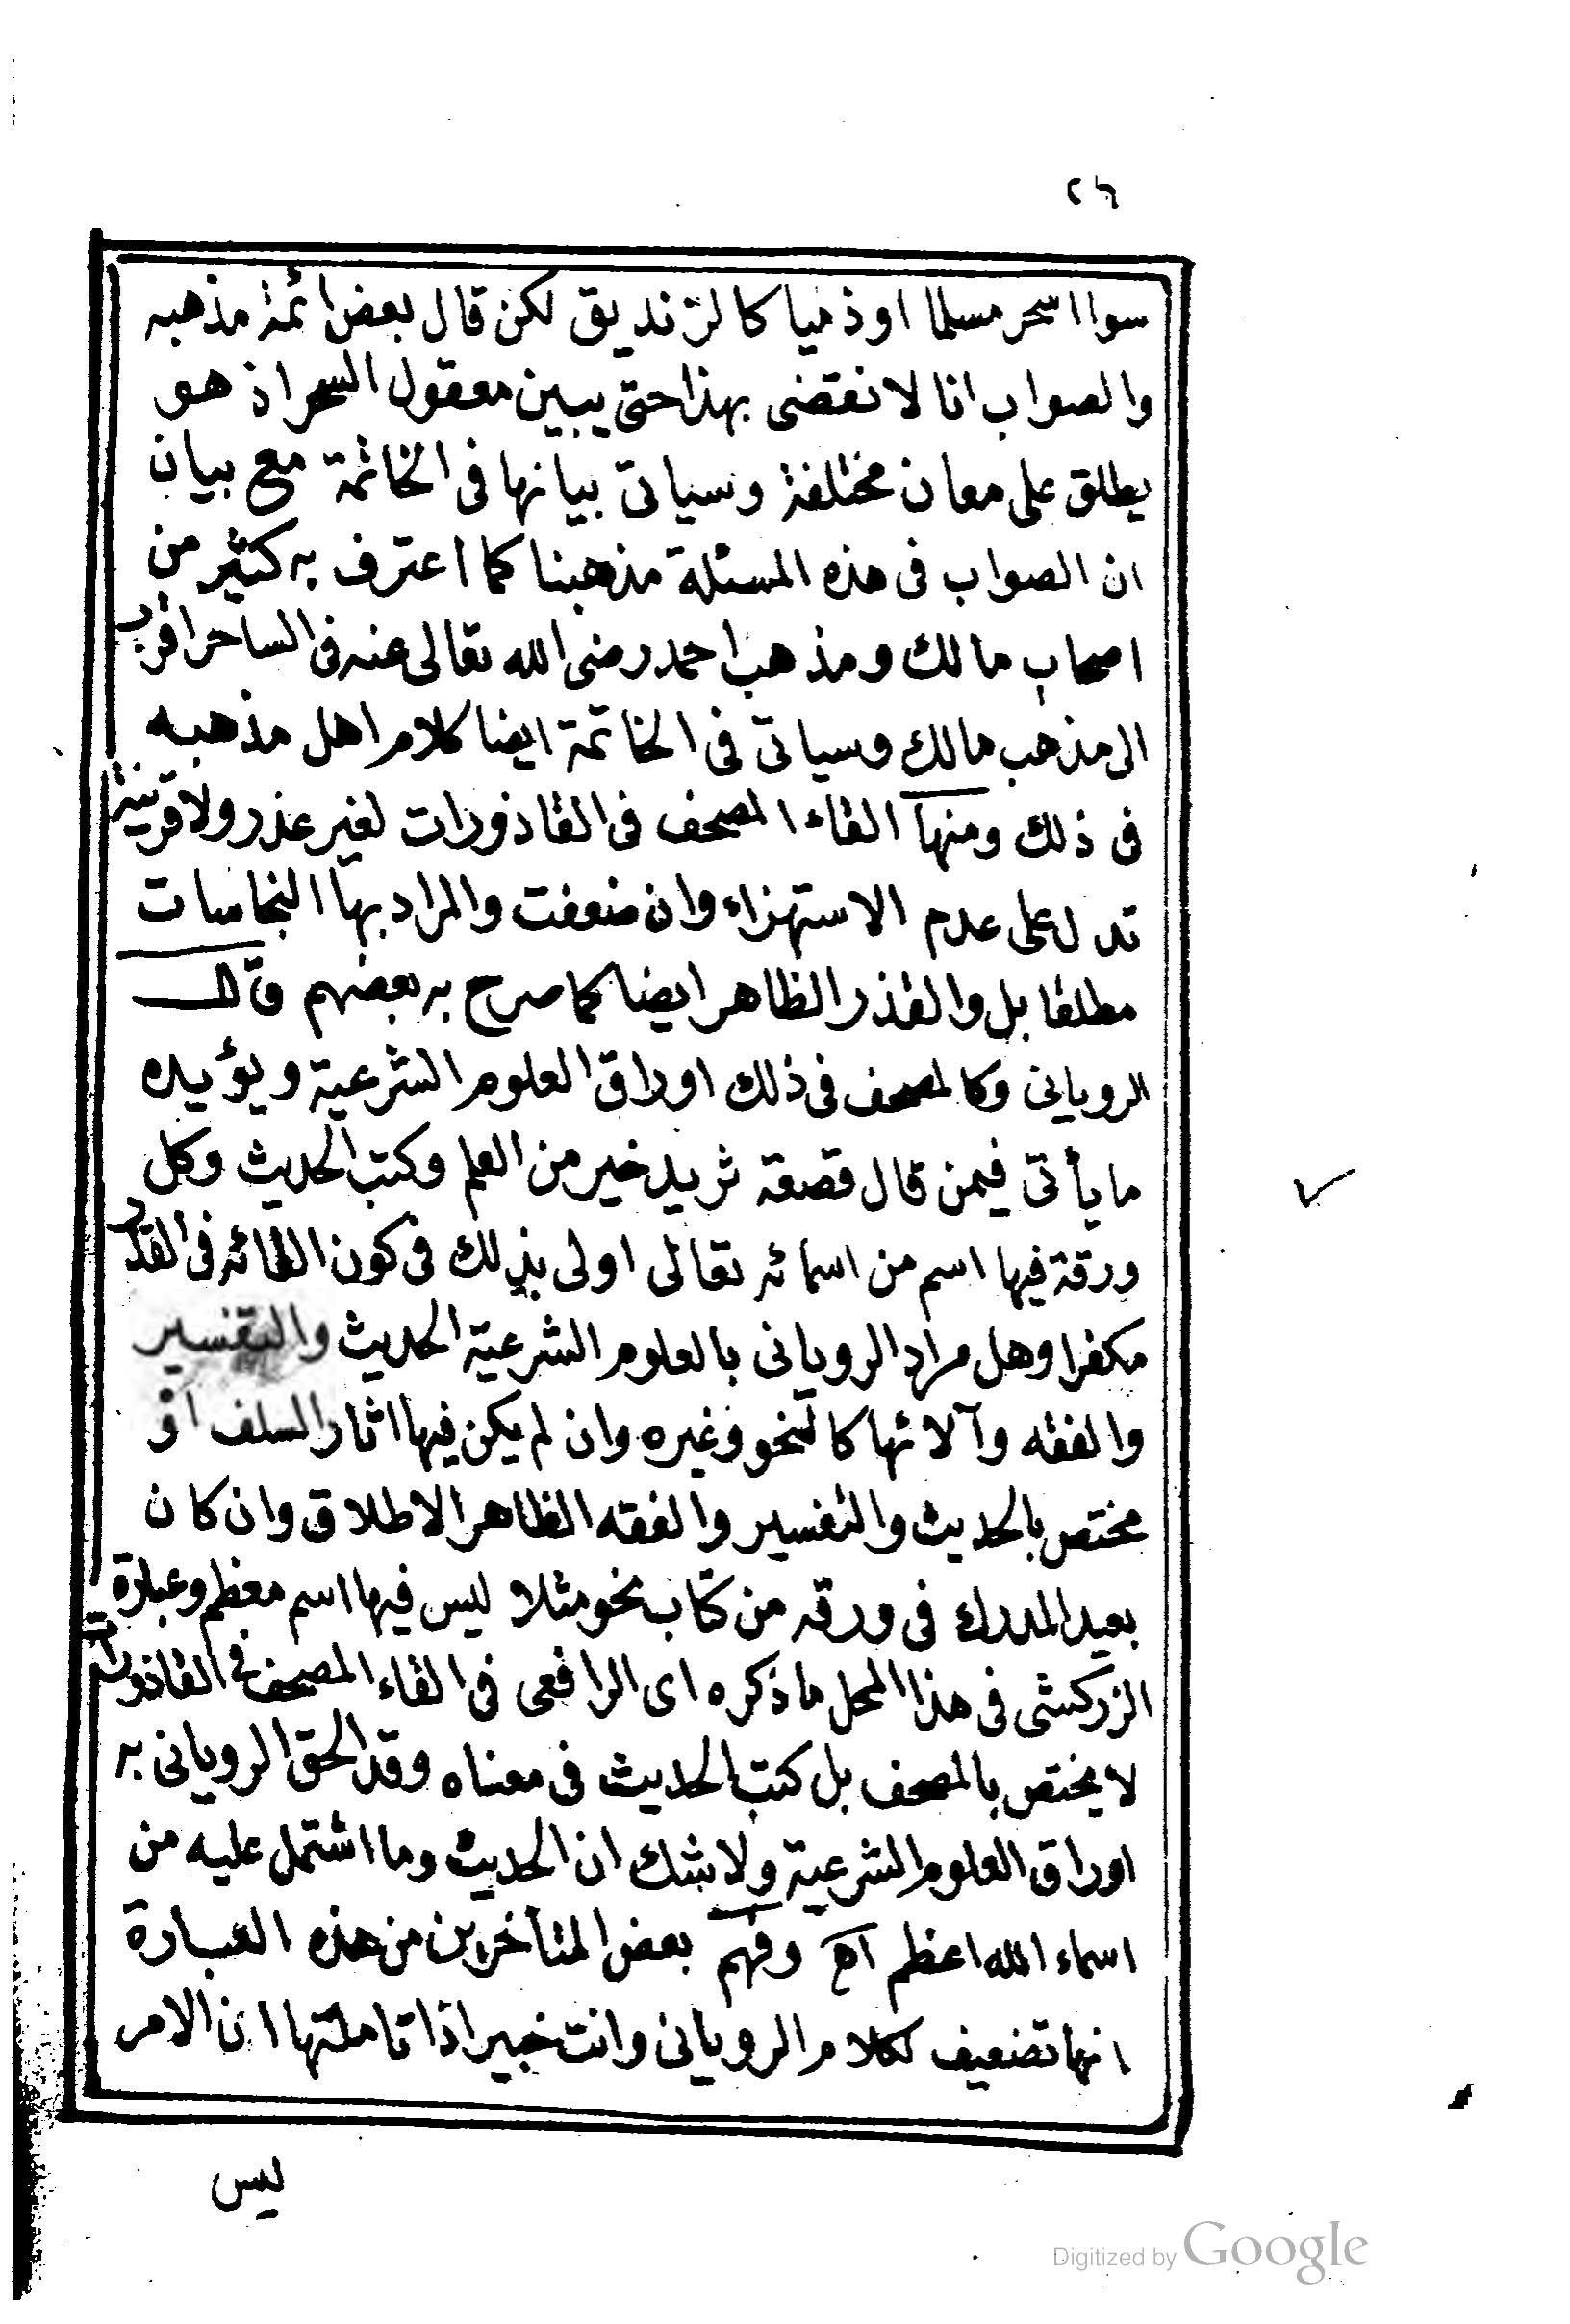 ٢٦
سوا اسحر مسلما او ذميا كالزنديق لكن قال بعض ائمة مذهبه
والصواب انا لا نقضى بهذا حتى يبين معقول السحر اذ هو
يطلق على معان مختلفة وسياتى بيانها فى الخاتمة مع بيان
ان الصواب فى هذه المسئلة مذهبنا كما اعترف به كثير من
اصحاب مالك ومذهب احمد رضى الله تعالى عنه فى الساحر اقرب
الى مذهب مالك وسياتى فى الخاتمة ايضا كلام اهل مذهبه
فى ذلك ومنها القاء المصحف فى القاذورات لغير عذر ولا قرينة
تدل على عدم الاستهزاء وان ضعفت والمراد بها النجاسات
مطلقا بل والقذر الظاهر ايضا كما صرح به بعضهم قال
الرويانى وكالمصحف فى ذلك اوراق العلوم الشرعية ويؤيده
ما يأتى فيمن قال قصعة ثريد خير من العلم وكتب الحديث وكل
ورقة فيها اسم من اسمائه تعالى اولى بذلك فى كون القائه فى القذر
مكفرا وهل مراد الرويانى بالعلوم الشرعية الحديث والتفسير
والفقه وآلاتها كالنحو وغيره وان لم يكن فيها اثار السلف او
مختص بالحديث والتفسير والفقه الظاهر الاطلاق وان كان
بعيد المدرك فى ورقه من كتاب نحو مثلا ليس فيها اسم معظم وعبارة
الزركشى فى هذا المحل ما ذكره اى الرافعى فى القاء المصحف فى القاذورات
لا يختص بالمصحف بل كتب الحديث فى معناه وقد الحق الرويانى به
اوراق العلوم الشرعية ولا شك ان الحديث وما اشتمل عليه من
اسماء الله اعظم اه وفهم بعض المتأخرين من هذه العبارة
انها تضعيف لكلام الرويانى وانت خبير اذا تاملتها ان الامر
ليس
Digitized by Google